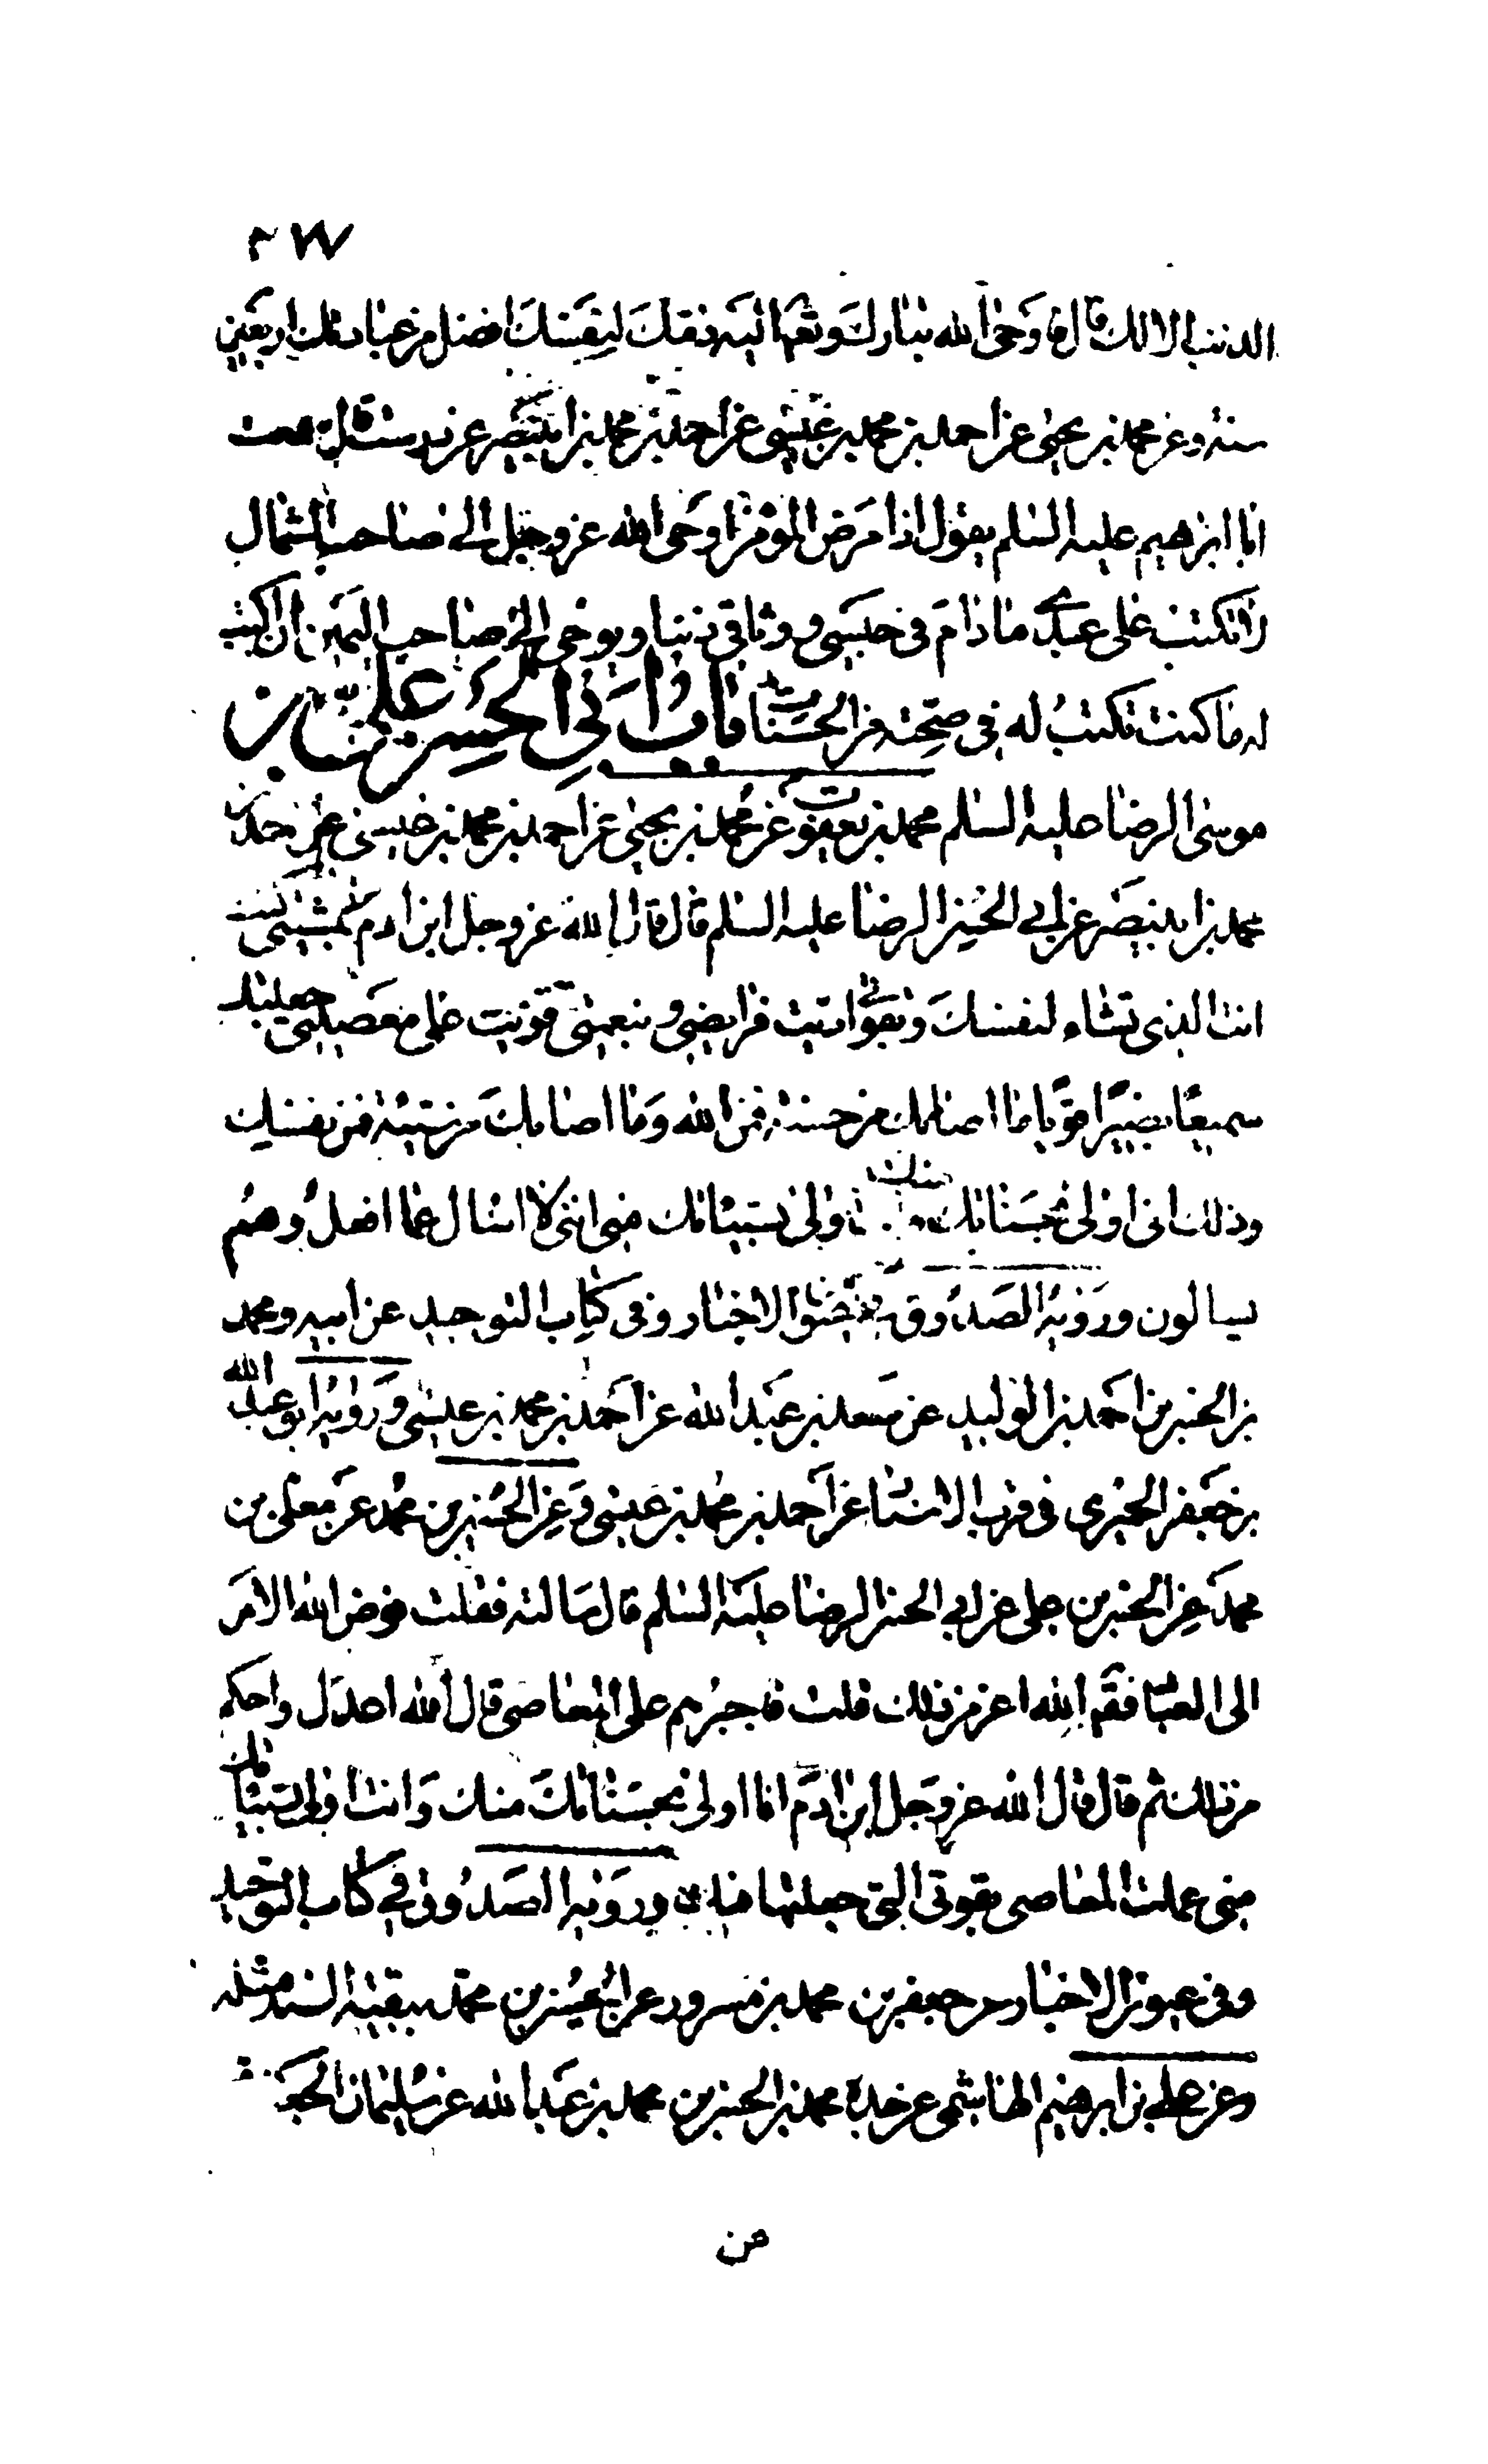 ٢٧٧
الذنب الا لك قال فاوحى الله تبارك وتعالى اليه ذمك لنفسك افضل من عبادتك اربعين
سنة وعن محمد بن يحيى عن احمد بن محمد بن عيسى عن احمد بن محمد بن ابي نصر عن درست قال سمعت
ابا ابرهيم عليه السلم يقول اذا مرض المؤمن اوحى الله عز وجل الى صاحب الشمال
لا تكتب على عبدي ما دام في حبسي ووثاقي ذنبا ويوحي الى صاحب اليمين ان اكتب
له ما كنت تكتب له في صحته من الحسنات باب ابي الحسن علي بن
موسى الرضا عليه السلم محمد بن يعقوب عن محمد بن يحيى عن احمد بن محمد بن عيسى عن احمد بن
محمد بن ابي نصر عن ابي الحسن الرضا عليه السلم قال قال الله عز وجل ابن ادم بمشيتي كنت
انت الذي تشاء لنفسك وبقوتي اديت فرايضي وبنعمتي قويت على معصيتي جعلتك
سميعا بصيرا قويا ما اصابك من حسنة فمن الله وما اصابك من سيئة فمن نفسك
وذلك اني اولى بحسناتك منك وانت اولى بسيئاتك مني انني لا اسال عما افعل وهم
يسالون ورويه الصدوق في عيون الاخبار وفي كتاب التوحيد عن ابيه ومحمد
بن الحسن بن احمد بن الوليد عن سعد بن عبد الله عن احمد بن محمد بن عيسى ورويه ابو عبد الله
بن جعفر الحميري في قرب الاسناد عن احمد بن محمد بن عيسى وعن الحسين بن محمد عن معلى بن
محمد عن الحسن بن علي عن ابي الحسن الرضا عليه السلم قال سالته فقلت فوض الله الامر
الى العباد فقال الله اعز من ذلك قلت فاجبرهم على المعاصي قال الله اعدل واحكم
من ذلك ثم قال قال الله عز وجل ابن ادم انا اولى بحسناتك منك وانت اولى بسيئاتك
مني عملت المعاصي بقوتي التي جعلتها فيك ورويه الصدوق في كتاب التوحيد
وفي عيون الاخبار عن جعفر بن محمد بن مسرور عن الحسين بن محمد ببقية السند مثله
وعن علي بن ابرهيم الهاشمي عن جده محمد بن الحسن بن محمد بن عبد الله عن سليمان الجعفري
من